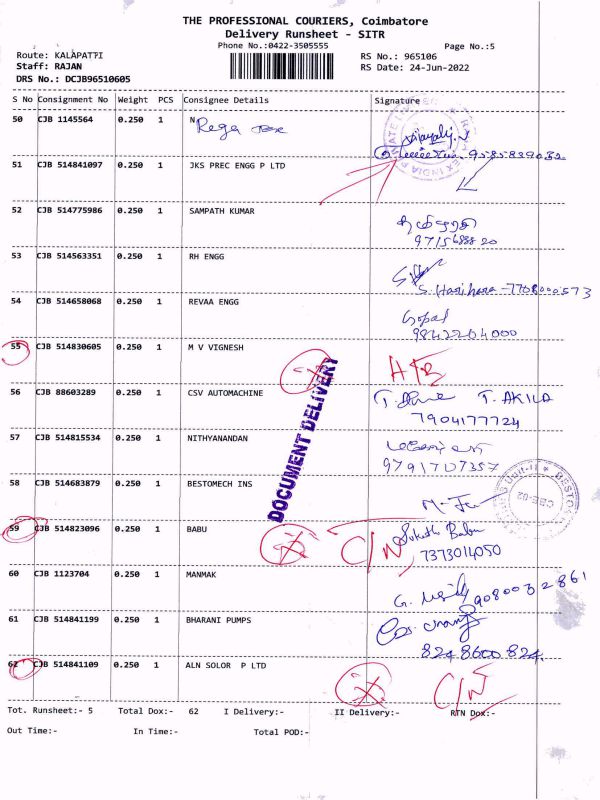 THE PROFESSIONAL COURIERS, Coimbatore
Delivery Runsheet - SITR
Phone No.:0422-3505555
Page No.:5
Route: KALAPATTI
Staff: RAJAN
DRS No.: DCJB96510605
RS No.: 965106
RS Date: 24-Jun-2022
S No Consignment No Weight PCS Consignee Details Signature
50 CJB 1145564 0.250 1 N
9585839032
51 CJB 514841097 0.250 1 JKS PREC ENGG P LTD
52 CJB 514775986 0.250 1 SAMPATH KUMAR
9715688820
53 CJB 514563351 0.250 1 RH ENGG
S. Harihara - 7708000573
54 CJB 514658068 0.250 1 REVAA ENGG
Gopal
9842204000
55 CJB 514830605 0.250 1 M V VIGNESH
56 CJB 88603289 0.250 1 CSV AUTOMACHINE T. AKILA
7904177724
57 CJB 514815534 0.250 1 NITHYANANDAN
9791707357
DOCUMENT DELIVERY
58 CJB 514683879 0.250 1 BESTOMECH INS
59 CJB 514823096 0.250 1 BABU C/N Babu
7373014050
60 CJB 1123704 0.250 1 MANMAK
9080032861
61 CJB 514841199 0.250 1 BHARANI PUMPS
8248600824
62 CJB 514841109 0.250 1 ALN SOLOR P LTD C/N
Tot. Runsheet:- 5 Total Dox:- 62 I Delivery:- II Delivery:- RTN Dox:-
Out Time:- In Time:- Total POD:-